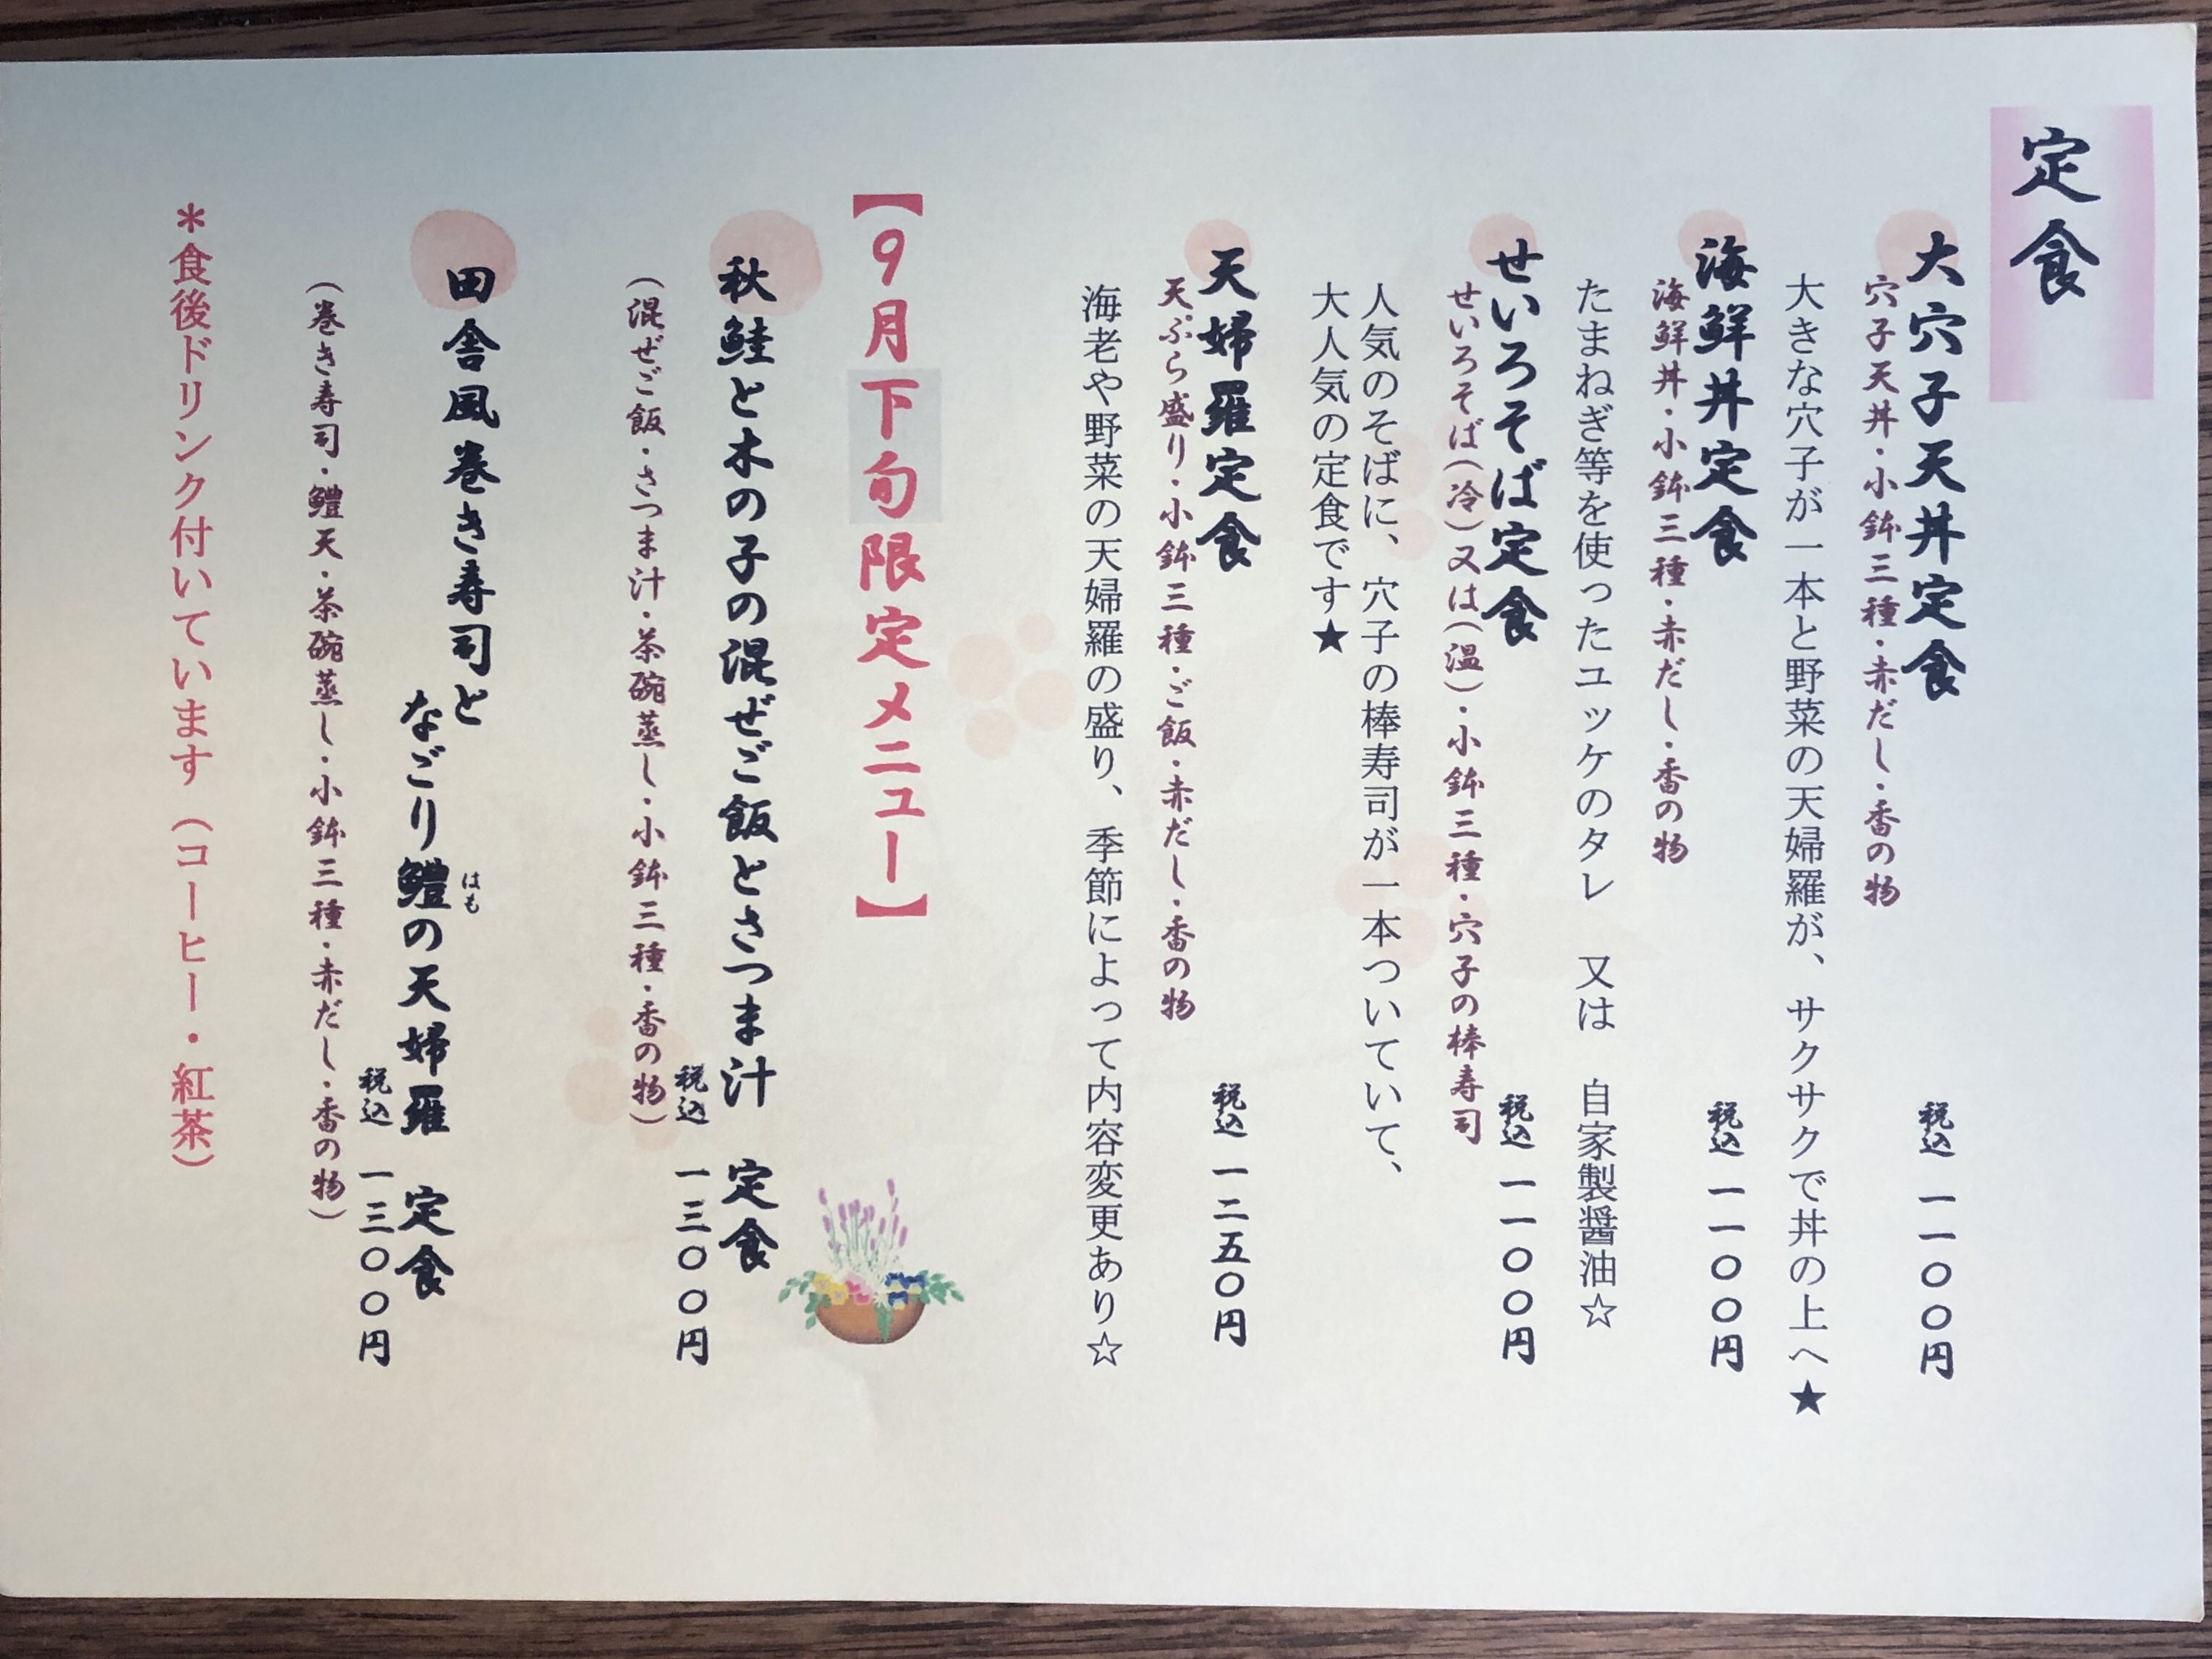 定食
大穴子天丼定食 税込 一一〇〇円
穴子天丼・小鉢三種・赤だし・香の物
大きな穴子が一本と野菜の天婦羅が、サクサクで丼の上へ★
海鮮丼定食 税込 一一〇〇円
海鮮丼・小鉢三種・赤だし・香の物
たまねぎ等を使ったユッケのタレ 又は 自家製醤油☆
せいろそば定食 税込 一一〇〇円
せいろそば(冷)又は(温)・小鉢三種・穴子の棒寿司
人気のそばに、穴子の棒寿司が一本ついていて、
大人気の定食です★
天婦羅定食 税込 一二五〇円
天ぷら盛り・小鉢三種・ご飯・赤だし・香の物
海老や野菜の天婦羅の盛り、季節によって内容変更あり☆
【9月下旬限定メニュー】
秋鮭と木の子の混ぜご飯とさつま汁 定食
税込 一三〇〇円
(混ぜご飯・さつま汁・茶碗蒸し・小鉢三種・香の物)
田舎風巻き寿司と
はも
なごり鱧の天婦羅 定食
税込 一三〇〇円
(巻き寿司・鱧天・茶碗蒸し・小鉢三種・赤だし・香の物)
*食後ドリンク付いています(コーヒー・紅茶)